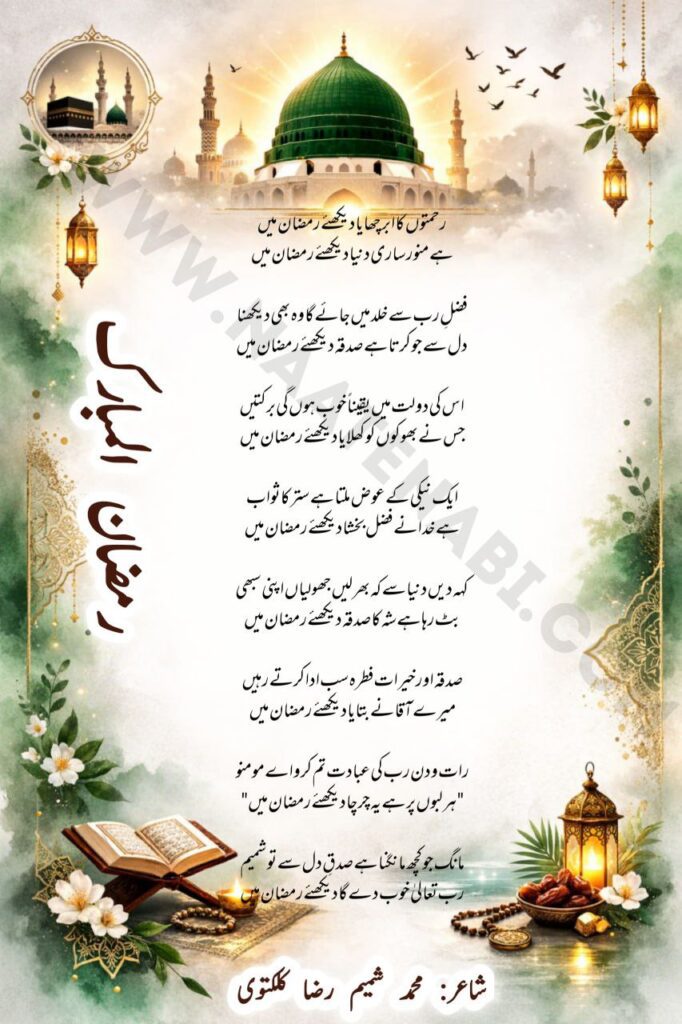 رحمتوں کا ابر چھایا دیکھئے رمضان میں
ہے منور ساری دنیا دیکھئے رمضان میں
فضلِ رب سے خلد میں جائے گا وہ بھی دیکھنا
دل سے جو کرتا ہے صدقہ دیکھئے رمضان میں
اس کی دولت میں یقیناً خوب ہوں گی برکتیں
جس نے بھوکوں کو کھلایا دیکھئے رمضان میں
ایک نیکی کے عوض ملتا ہے ستر کا ثواب
ہے خدا نے فضل بخشا دیکھئے رمضان میں
کہہ دیں دنیا سے کہ بھر لیں جھولیاں اپنی سبھی
بٹ رہا ہے شہ کا صدقہ دیکھئے رمضان میں
صدقہ اور خیرات فطرہ سب ادا کرتے رہیں
میرے آقا نے بتایا دیکھئے رمضان میں
رات و دن رب کی عبادت تم کرو اے مومنو
"ہر لبوں پر ہے یہ چرچا دیکھئے رمضان میں"
مانگ جو کچھ مانگنا ہے صدقِ دل سے تو شمیم
رب تعالیٰ خوب دے گا دیکھئے رمضان میں
رمضان المبارک
شاعر: محمد شمیم رضا کلکتوی
WWW.NAATENABI.COM